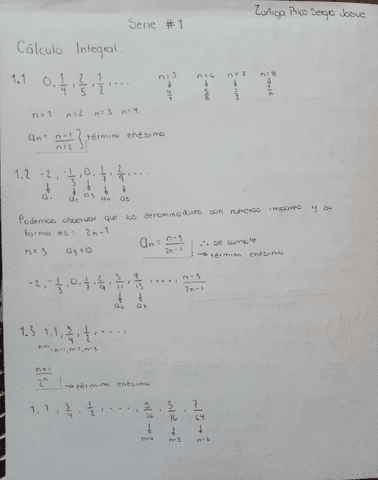 Zuñiga Rico Sergio Josue
Serie #1
Cálculo Integral.
1.1 0, 1/4, 2/5, 1/2, ... n=5 n=6 n=7 n=8
↓ 4/7 ↓ 5/8 ↓ 2/3 ↓
n=1 n=2 n=3 n=4
an = n-1/n+2 } término enésimo
1.2 -2, -1/3, 0, 1/7, 2/9, ...
↓ a1 ↓ a2 ↓ a3 ↓ a4 ↓ a5
Podemos observar que los denominadores son números impares y su
forma es: 2n-1
n=3 a3=0 an = n-3/2n-1 ∴ se cumple
→ término enésimo
-2, -1/3, 0, 1/7, 2/9, 3/11, 4/13, ..., n-3/2n-1
↓ a6 ↓ a7
1.3 1, 1, 3/4, 1/2, ...
n=0, n=1, n=2, n=3
n+1/2^n → término enésimo
1, 1, 3/4, 1/2, ..., 5/16, 3/16, 7/64
↓ n=4 ↓ n=5 ↓ n=6